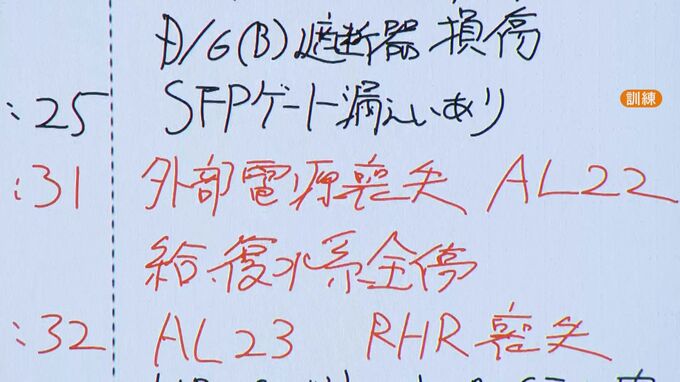 D/G(B)遮断器 損傷
:25 SFPゲート漏えいあり
訓練
:31 外部電源喪失 AL22
給復水系全停
:32 AL23 RHR喪失